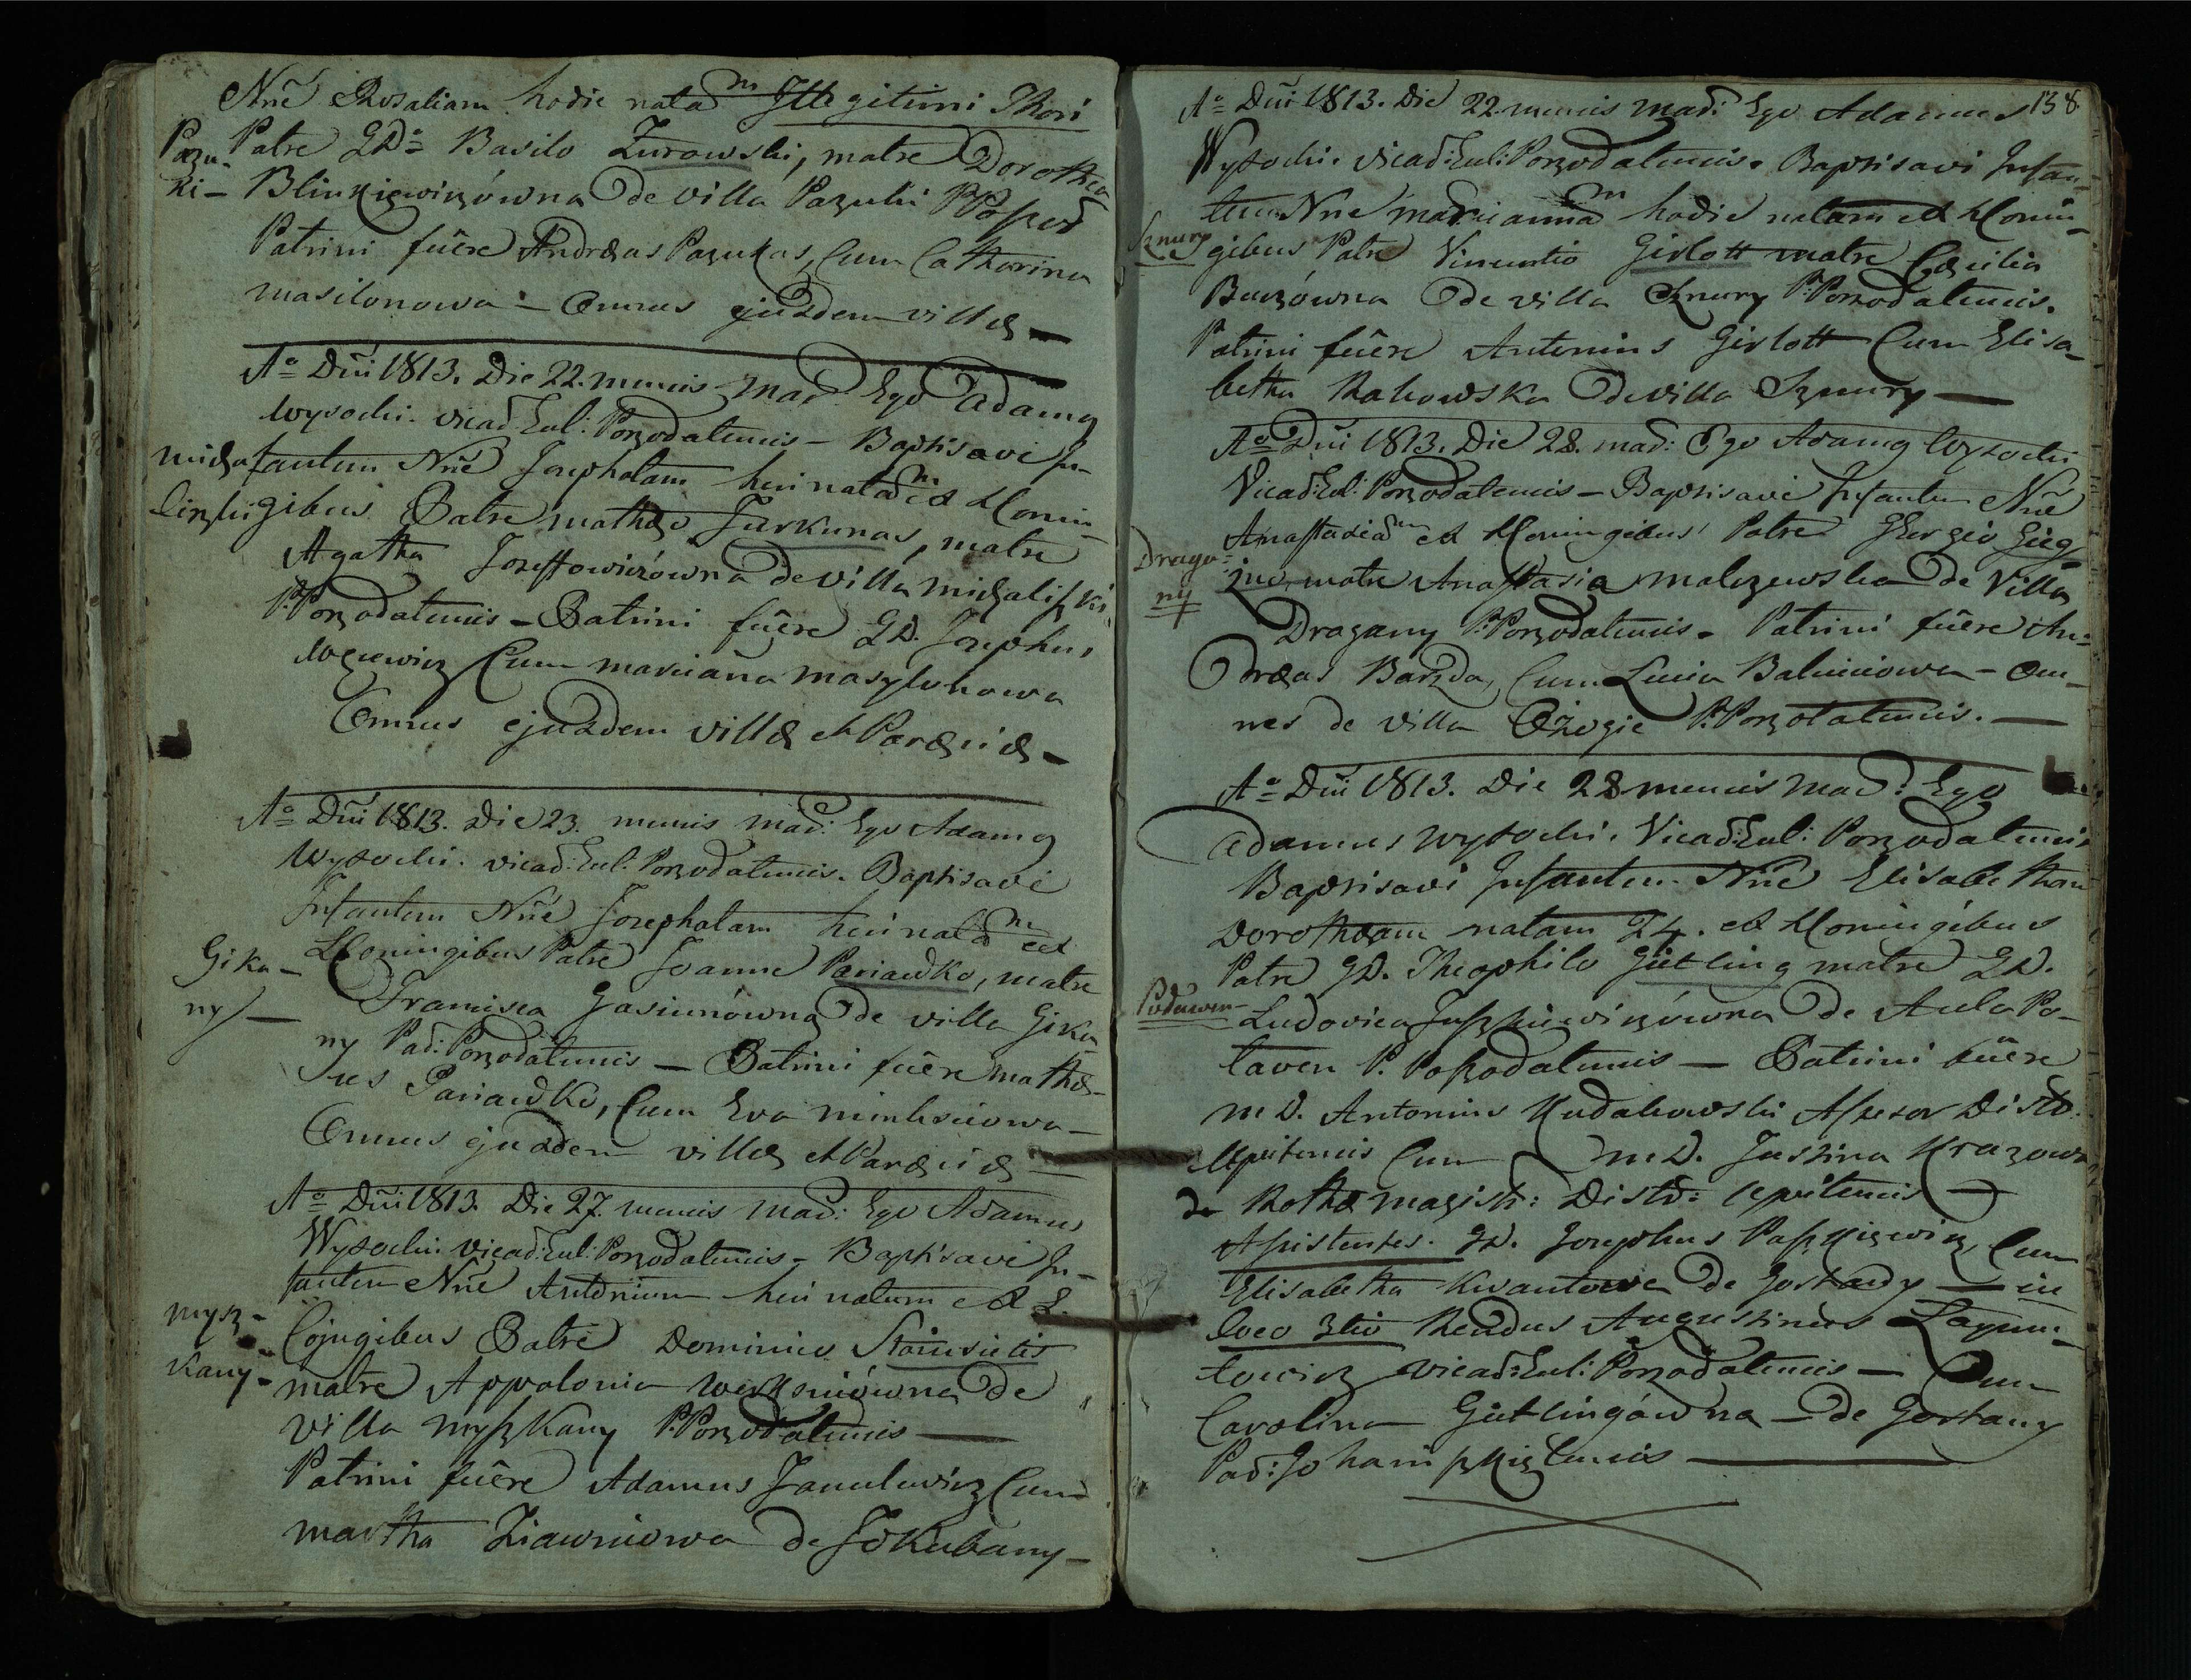 Nnē Rosaliam hodie natam Illegitimi Thori
Pazu- Patre GD= Basilo Żurowski, matre Dorothea
ki- Blinkiewiczówna de villa Pazuki PPoszod
Patrini fûere Andræas Pazukas, Cum Catharina
masilonowa - Omnes ejusdem villæ -
Aº= Dnī 1813. Die 22. mensis Mad. Ego Adamg
Wysocki. vicad: Eul: Porzodatensis - Baptisavi In-
micha fantem Nnē Josephatam heri natam ex LConiu-
liszki gibus Patre mathæo Jurkunas, matre
Agatha Jozeffowiczówna de villa michaliszki,
P.Porzodatensis - Patrini fûere GD. Josephus
Cum marianna masylunowa
Omnes ejusdem villæ et Paræciæ -
Aº= Dnī 1813. Die 23. mensis mad: Ego Adamg
Wysocki. vicad: Eul: Porzodatensis. Baptisavi
Infantem Nnē Josephatam heri natam ex
Gika- LConiugibus Patre Joanne Pariawko, matre
ny - Francisca Gasiunówna de villa Gika-
ny Pad: Porzodatensis - Patrini fûere mathæ-
us Pariawko, Cum Eva
Omnes ejusdem villæ et Paræciæ -
Aº= Dnī 1813. Die 27. mensis mad: Ego Adamus
Wysocki. vicad: Eul: Porzodatensis - Baptisavi In-
fantem Nnē Antonium heri natum ex L.
mysz- Cojugibus Patre Dominico
kany- matre Appolonia de
villa myszkany P.Porzodatensis -
Patrini fûere Adamus Janulewicz Cum
martha Ziawniowa de Jokubany -
138.
Aº= Dnī 1813. Die 22 mensis mad: Ego Adamus
Wysocki. vicad: Eul: Porzodatensis. Baptisavi Infan-
tem Nnē mariannam hodie natam ex LConiu-
Sznury gibus Patre Vincentio Girlott matre Cæcilia
Buczówna de villa Sznury P.Porzodatensis.
Patrini fûere Antonius Girlott Cum Elisa-
betha Rakowska de villa Sznury -
Aº= Dnī 1813. Die 28. mad: Ego Adamg Wysocki
Vicad: Eul: Porzodatensis - Baptisavi Infantem Nnē
Anastasiam ex LConiugibus Patre Georgio Gieg-
Draga- zno, matre Anastasia malczewska de Villa
ny Dragany P.Porzodatensis. Patrini fûere An-
dræas Barzda, Cum Lucia Baluniowa - Om-
nes de villa Ożogie P.Porzodatensis. -
Aº= Dnī 1813. Die 28 mensis mad: Ego
Adamus Wysocki. Vicad: Eul: Porzodatensis
Baptisavi Infantem Nnē Elisabetham
Dorotheam natam 24. ex LConiugibus
Patre GD. Theophilo Gietling matre GD.
Podawen- Ludovica Juszkiewiczówna de Aula Po-
tawen P. Poszodatensis - Patrini fûere
m D. Antonius Kudakowski Assesor Distr.
Upitensis Cum mD. Justina Krazowa
de Rothæ magistr: Distr: Upitensis -
Assistentes. GD. Josephus Paszkiewicz, Cum
Elisabetha Kwantowa de Gostany - in
loco 3tio Rendus Augustinus
vicad: Eul: Porzodatensis - Cum
Carolina Gietlingówna - de Gostany
Pad: Johaniszkielensis -